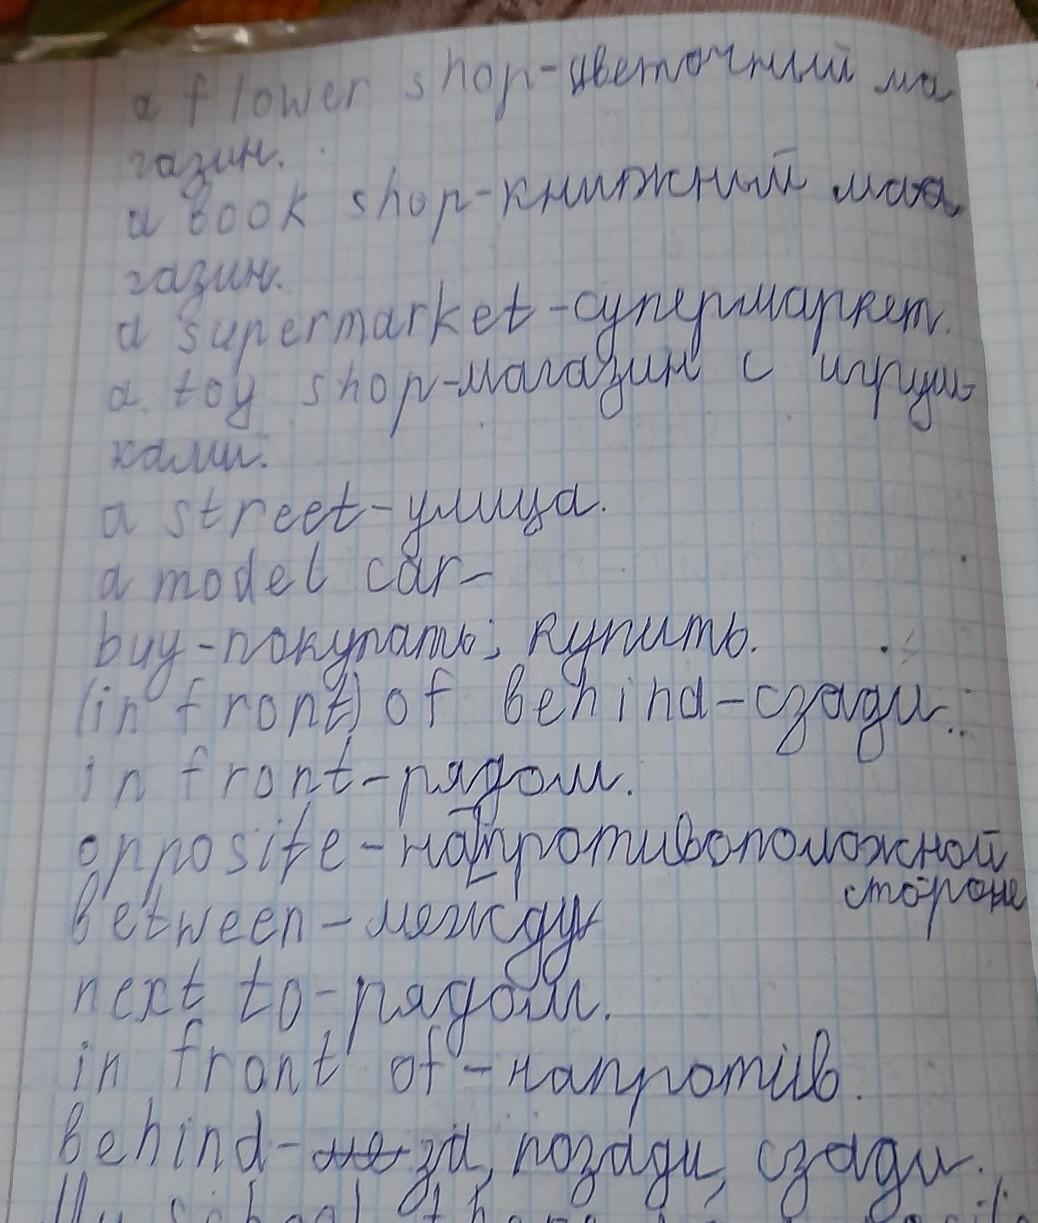 a flower shop-цветочный ма
газин.
a book shop-книжный маа
газин.
a supermarket-супермаркет.
a toy shop-магазин с игруш-
ками.
a street-улица.
a model car-
buy-покупать; купить.
(in front) of behind-сзади.
in front-рядом.
opposite-на противоположной
стороне
between-между
next to-рядом.
in front of-напротив.
behind-за, позади, сзади.
My school